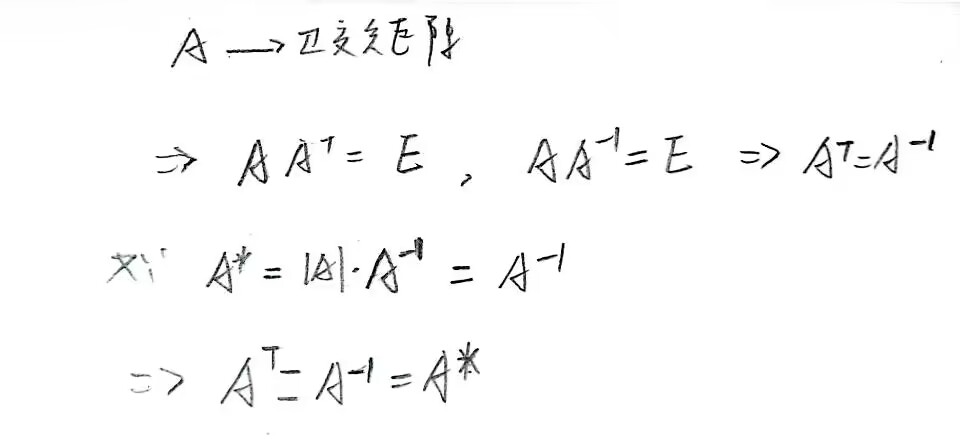 A → 正交矩阵
⇒ A Aᵀ = E , A A⁻¹ = E ⇒ Aᵀ = A⁻¹
又∵ A* = |A|·A⁻¹ = A⁻¹
⇒ Aᵀ = A⁻¹ = A*